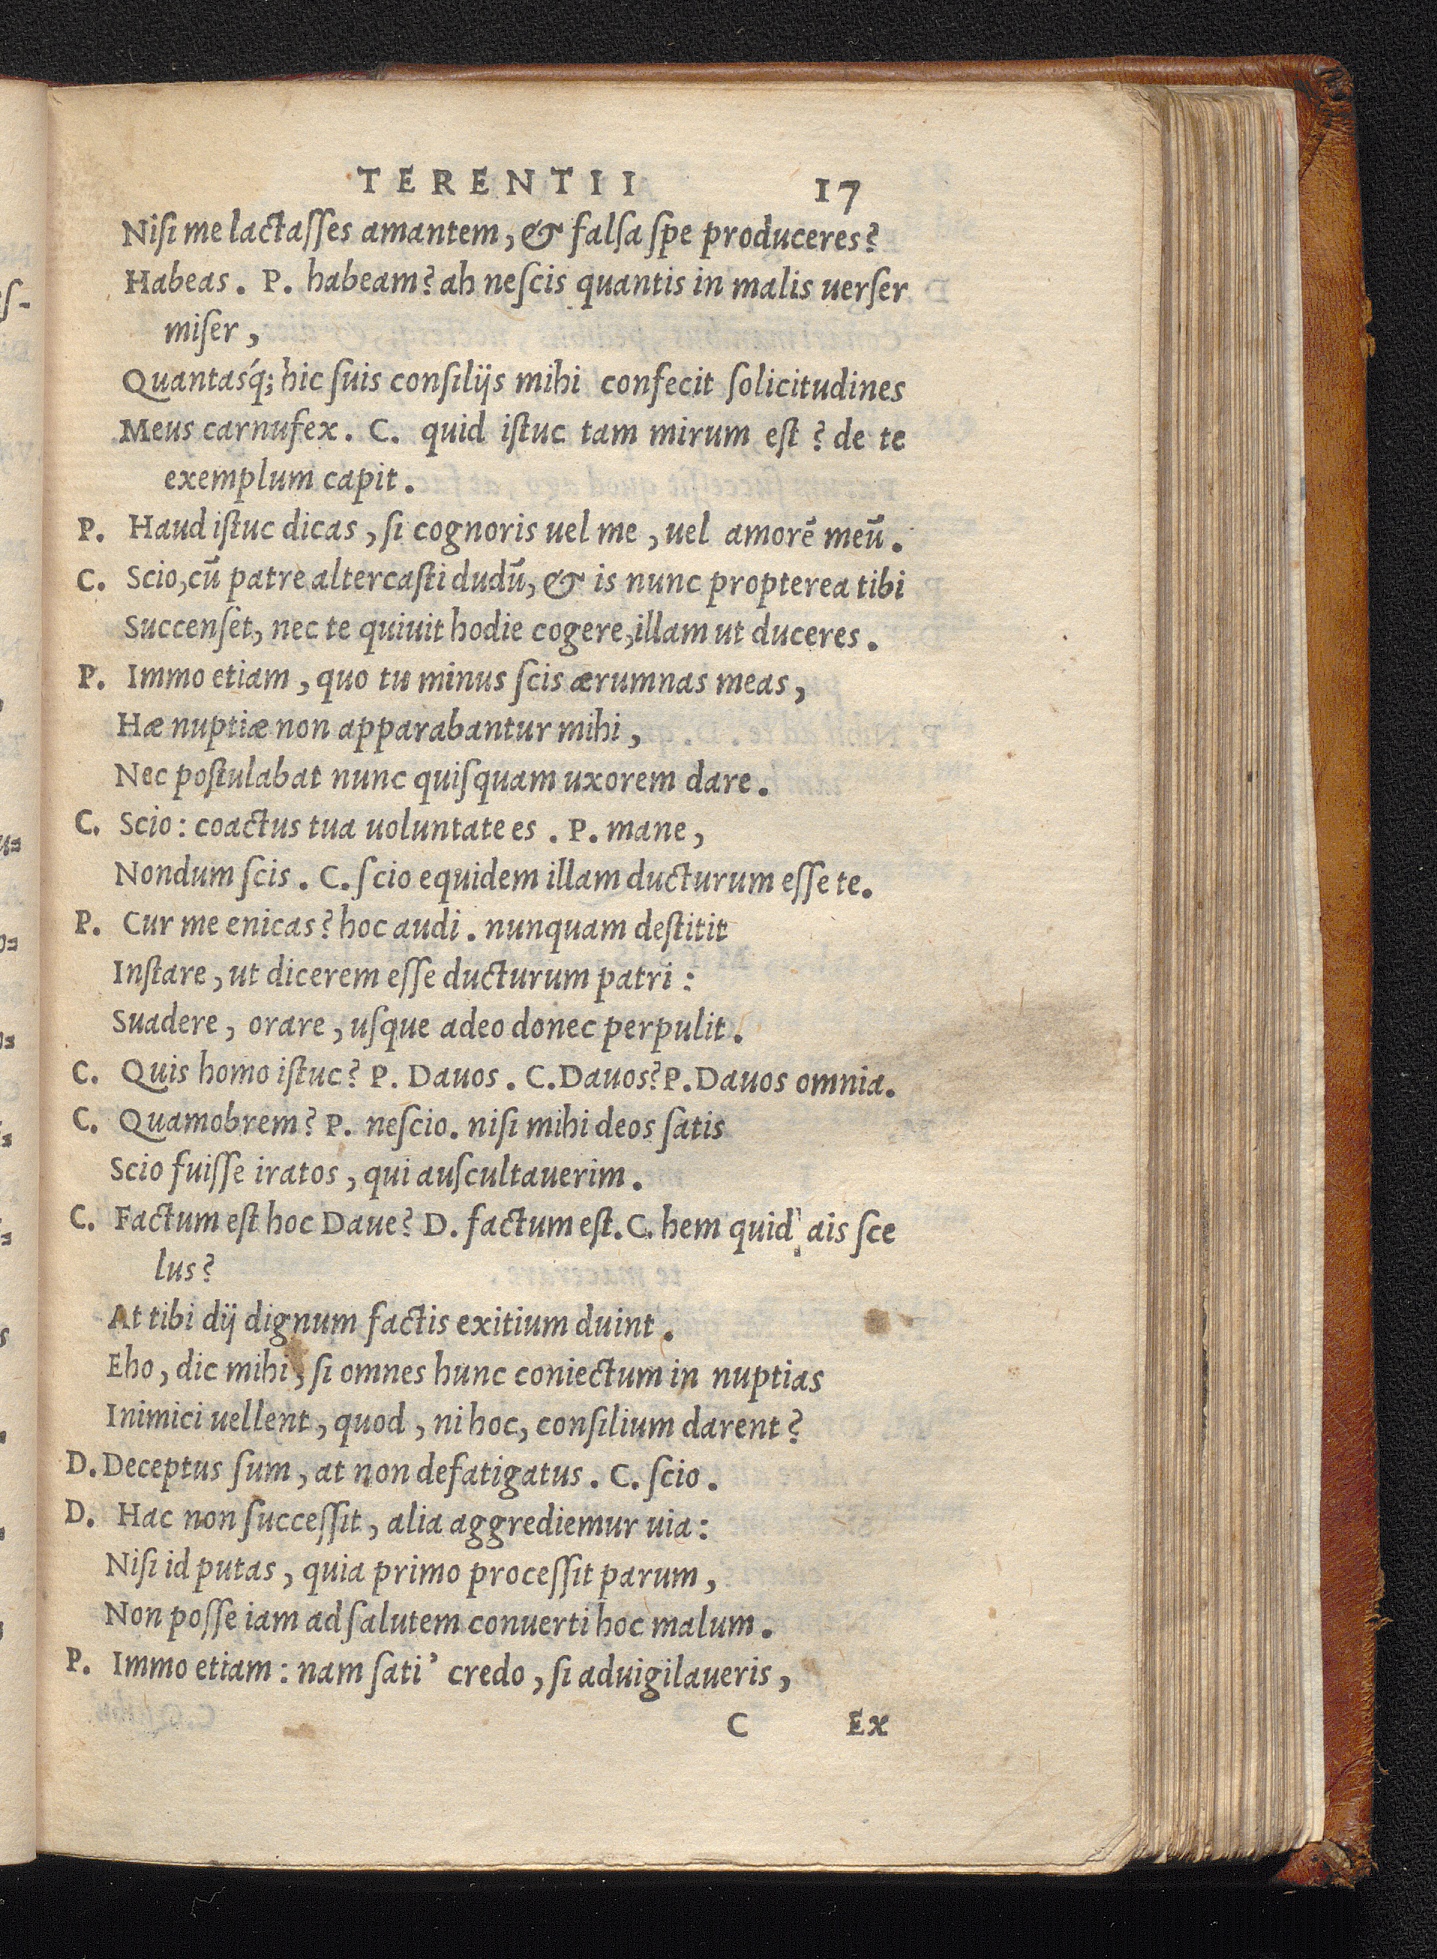 TERENTII 17
Niſi me lactaſſes amantem, & falſa ſpe produceres?
Habeas. P. habeam? ah neſcis quantis in malis uerſer
miſer,
Quantasq́; hic ſuis conſilijs mihi confecit ſolicitudines
Meus carnufex. C. quid iſtuc tam mirum eſt? de te
exemplum capit.
P. Haud iſtuc dicas, ſi cognoris uel me, uel amorē meū.
C. Scio, cū patre altercaſti dudū, & is nunc propterea tibi
Succenſet, nec te quiuit hodie cogere, illam ut duceres.
P. Immo etiam, quo tu minus ſcis ærumnas meas,
Hæ nuptiæ non apparabantur mihi,
Nec poſtulabat nunc quiſquam uxorem dare.
C. Scio: coactus tua uoluntate es. P. mane,
Nondum ſcis. C. ſcio equidem illam ducturum eſſe te.
P. Cur me enicas? hoc audi. nunquam deſtitit
Inſtare, ut dicerem eſſe ducturum patri:
Suadere, orare, uſque adeo donec perpulit.
C. Quis homo iſtuc? P. Dauos. C. Dauos? P. Dauos omnia.
C. Quamobrem? P. neſcio. niſi mihi deos ſatis
Scio fuiſſe iratos, qui auſcultauerim.
C. Factum eſt hoc Daue? D. factum eſt. C. hem quid ais ſce
lus?
At tibi dij dignum factis exitium duint.
Eho, dic mihi, ſi omnes hunc coniectum in nuptias
Inimici uellent, quod, ni hoc, conſilium darent?
D. Deceptus ſum, at non defatigatus. C. ſcio.
D. Hac non ſucceſſit, alia aggrediemur uia:
Niſi id putas, quia primo proceſſit parum,
Non poſſe iam ad ſalutem conuerti hoc malum.
P. Immo etiam: nam ſati' credo, ſi aduigilaueris,
C Ex